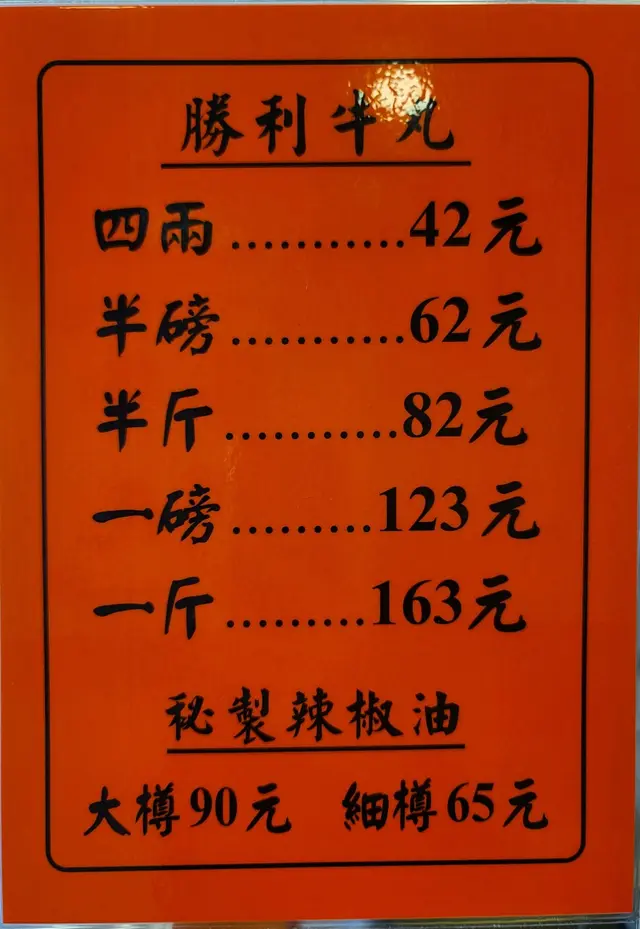 勝利牛丸
四兩...........42元
半磅...........62元
半斤...........82元
一磅.........123元
一斤.........163元
秘製辣椒油
大樽90元 細樽65元